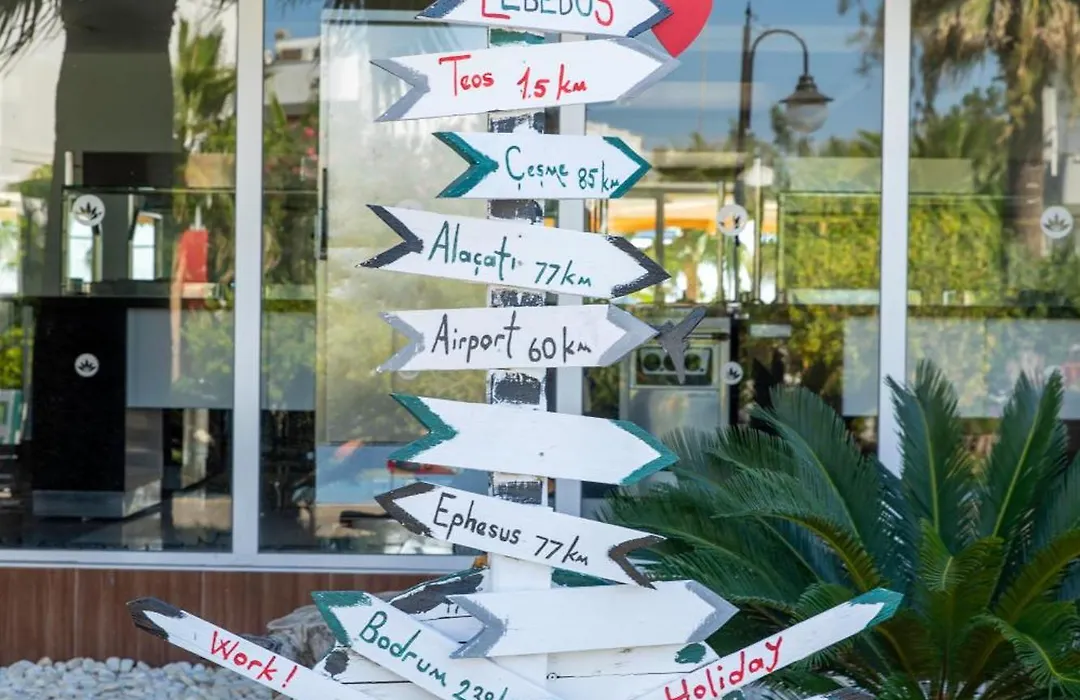 LEBEDOS
Teos 1.5 km
Çeşme 85 km
Alaçatı 77 km
Airport 60 km
Ephesus 77 km
Bodrum
Work!
Holiday